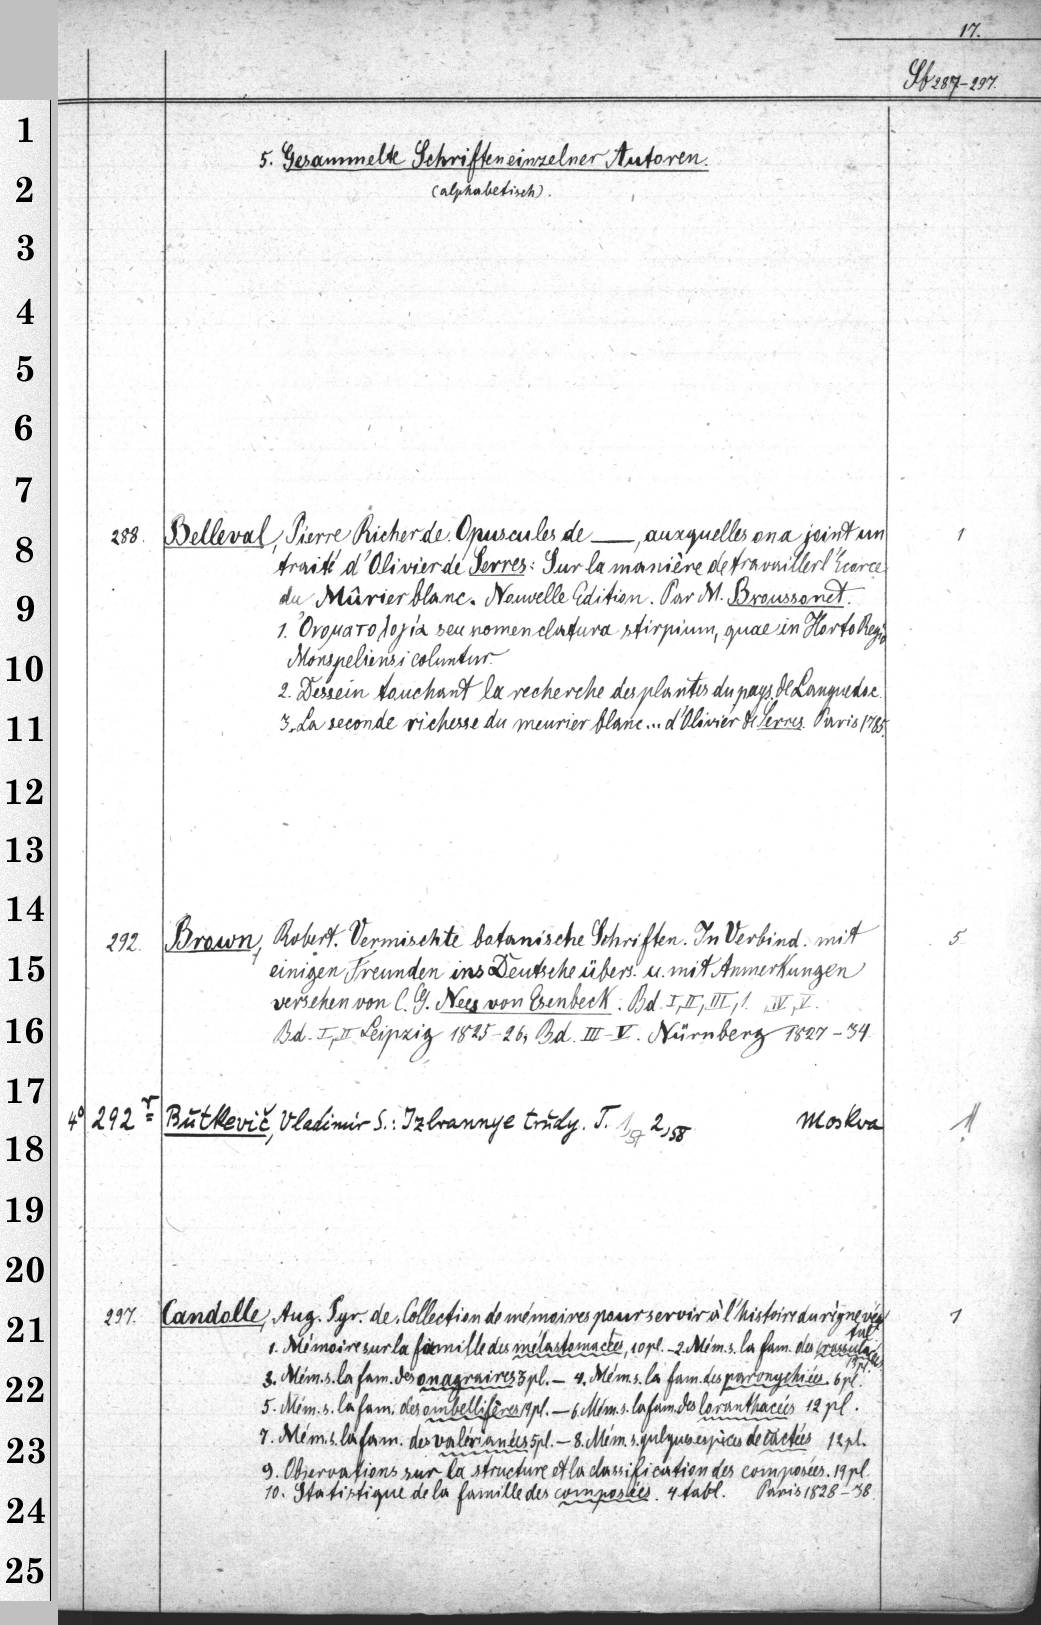 17.
Sb 287-297.
1
5. Gesammelte Schriften einzelner Autoren.
2
(alphabetisch).
3
4
5
6
7
288. Belleval, Pierre Richer de. Opuscules de —, auxquelles on a joint un 1
8
traité d'Olivier de Serres: Sur la manière de travailler l'Ecorce
9
du Mûrier blanc. Nouvelle Edition. Par M. Broussonet.
1. Ὀνοματολογία seu nomenclatura stirpium, quae in Horto Regio
10
Monspeliensi coluntur.
2. Dessein touchant la recherche des plantes du pays de Languedoc.
11
3. La seconde richesse du meurier blanc... d'Olivier de Serres. Paris 1785.
12
13
14
292. Brown, Robert. Vermischte botanische Schriften. In Verbind. mit 5
15
einigen Freunden ins Deutsche übers. u. mit Anmerkungen
versehen von C. G. Nees von Esenbeck. Bd. I, II, III, 1. IV, V.
16
Bd. I, II Leipzig 1825-26, Bd. III-V. Nürnberg 1827-34.
17
4° 292 r Butkevič, Vladimir S.: Izbrannye trudy. T. 1,57 2,58 Moskva 1
18
19
20
297. Candolle, Aug. Pyr. de. Collection de mémoires pour servir à l'histoire du règne végétal 1
21
1. Mémoire sur la famille des mélastomacées, 10 pl. - 2. Mém. s. la fam. des crassulacées 13 pl.
22
3. Mém. s. la fam. des onagraires 3 pl. - 4. Mém. s. la fam. des paronychiées. 6 pl.
5. Mém. s. la fam. des ombellifères 19 pl. - 6. Mém. s. la fam. des loranthacées 12 pl.
23
7. Mém. s. la fam. des valérianées 5 pl. - 8. Mém. s. qulques espices de cactées 12 pl.
9. Observations sur la structure et la classification des composées. 19 pl.
24
10. Statistique de la famille des composées. 4 tabl. Paris 1828-38.
25